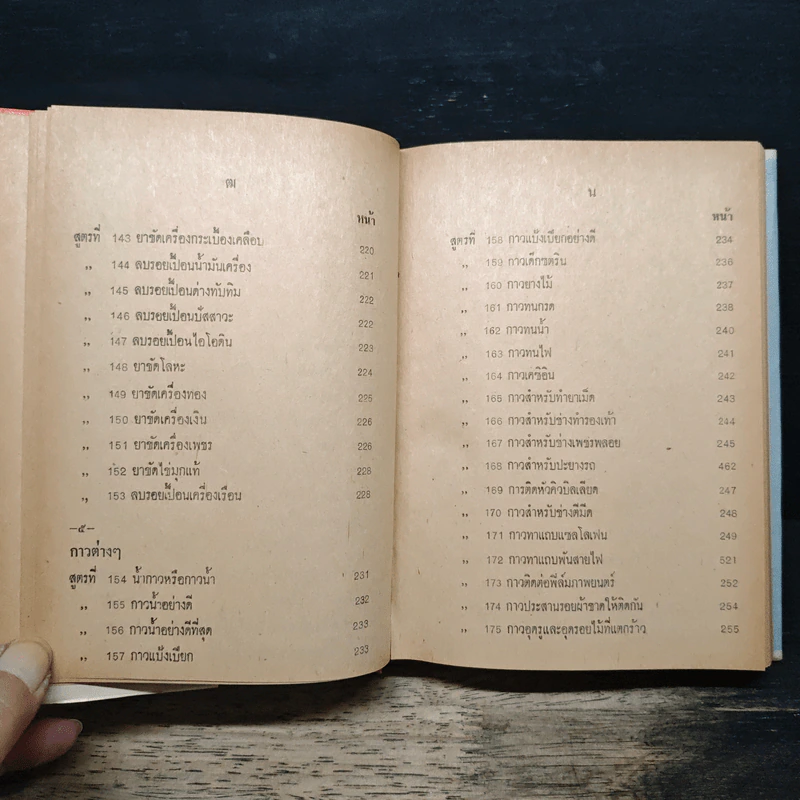 ฒ
หน้า
สูตรที่ 143 ยาขัดเครื่องกระเบื้องเคลือบ 220
,, 144 ลบรอยเปื้อนน้ำมันเครื่อง 221
,, 145 ลบรอยเปื้อนด่างทับทิม 222
,, 146 ลบรอยเปื้อนปัสสาวะ 222
,, 147 ลบรอยเปื้อนไอโอดิน 223
,, 148 ยาขัดโลหะ 224
,, 149 ยาขัดเครื่องทอง 225
,, 150 ยาขัดเครื่องเงิน 226
,, 151 ยาขัดเครื่องเพชร 226
,, 152 ยาขัดไข่มุกแท้ 228
,, 153 ลบรอยเปื้อนเครื่องเรือน 228
—๕—
กาวต่างๆ
สูตรที่ 154 น้ำกาวหรือกาวน้ำ 231
,, 155 กาวน้ำอย่างดี 232
,, 156 กาวน้ำอย่างดีที่สุด 233
,, 157 กาวแป้งเปียก 233
น
หน้า
สูตรที่ 158 กาวแป้งเปียกอย่างดี 234
,, 159 กาวเด็กซตริน 236
,, 160 กาวยางไม้ 237
,, 161 กาวทนกรด 238
,, 162 กาวทนน้ำ 240
,, 163 กาวทนไฟ 241
,, 164 กาวเคซิอิน 242
,, 165 กาวสำหรับทำยาเม็ด 243
,, 166 กาวสำหรับช่างทำรองเท้า 244
,, 167 กาวสำหรับช่างเพชรพลอย 245
,, 168 กาวสำหรับปะยางรถ 462
,, 169 การติดหัวคิวบิลเลียด 247
,, 170 กาวสำหรับช่างตีมีด 248
,, 171 กาวทาแถบแซลโลเฟน 249
,, 172 กาวทาแถบพันสายไฟ 521
,, 173 กาวติดต่อฟิล์มภาพยนตร์ 252
,, 174 กาวประสานรอยผ้าขาดให้ติดกัน 254
,, 175 กาวอุดรูและอุดรอยไม้ที่แตกร้าว 255